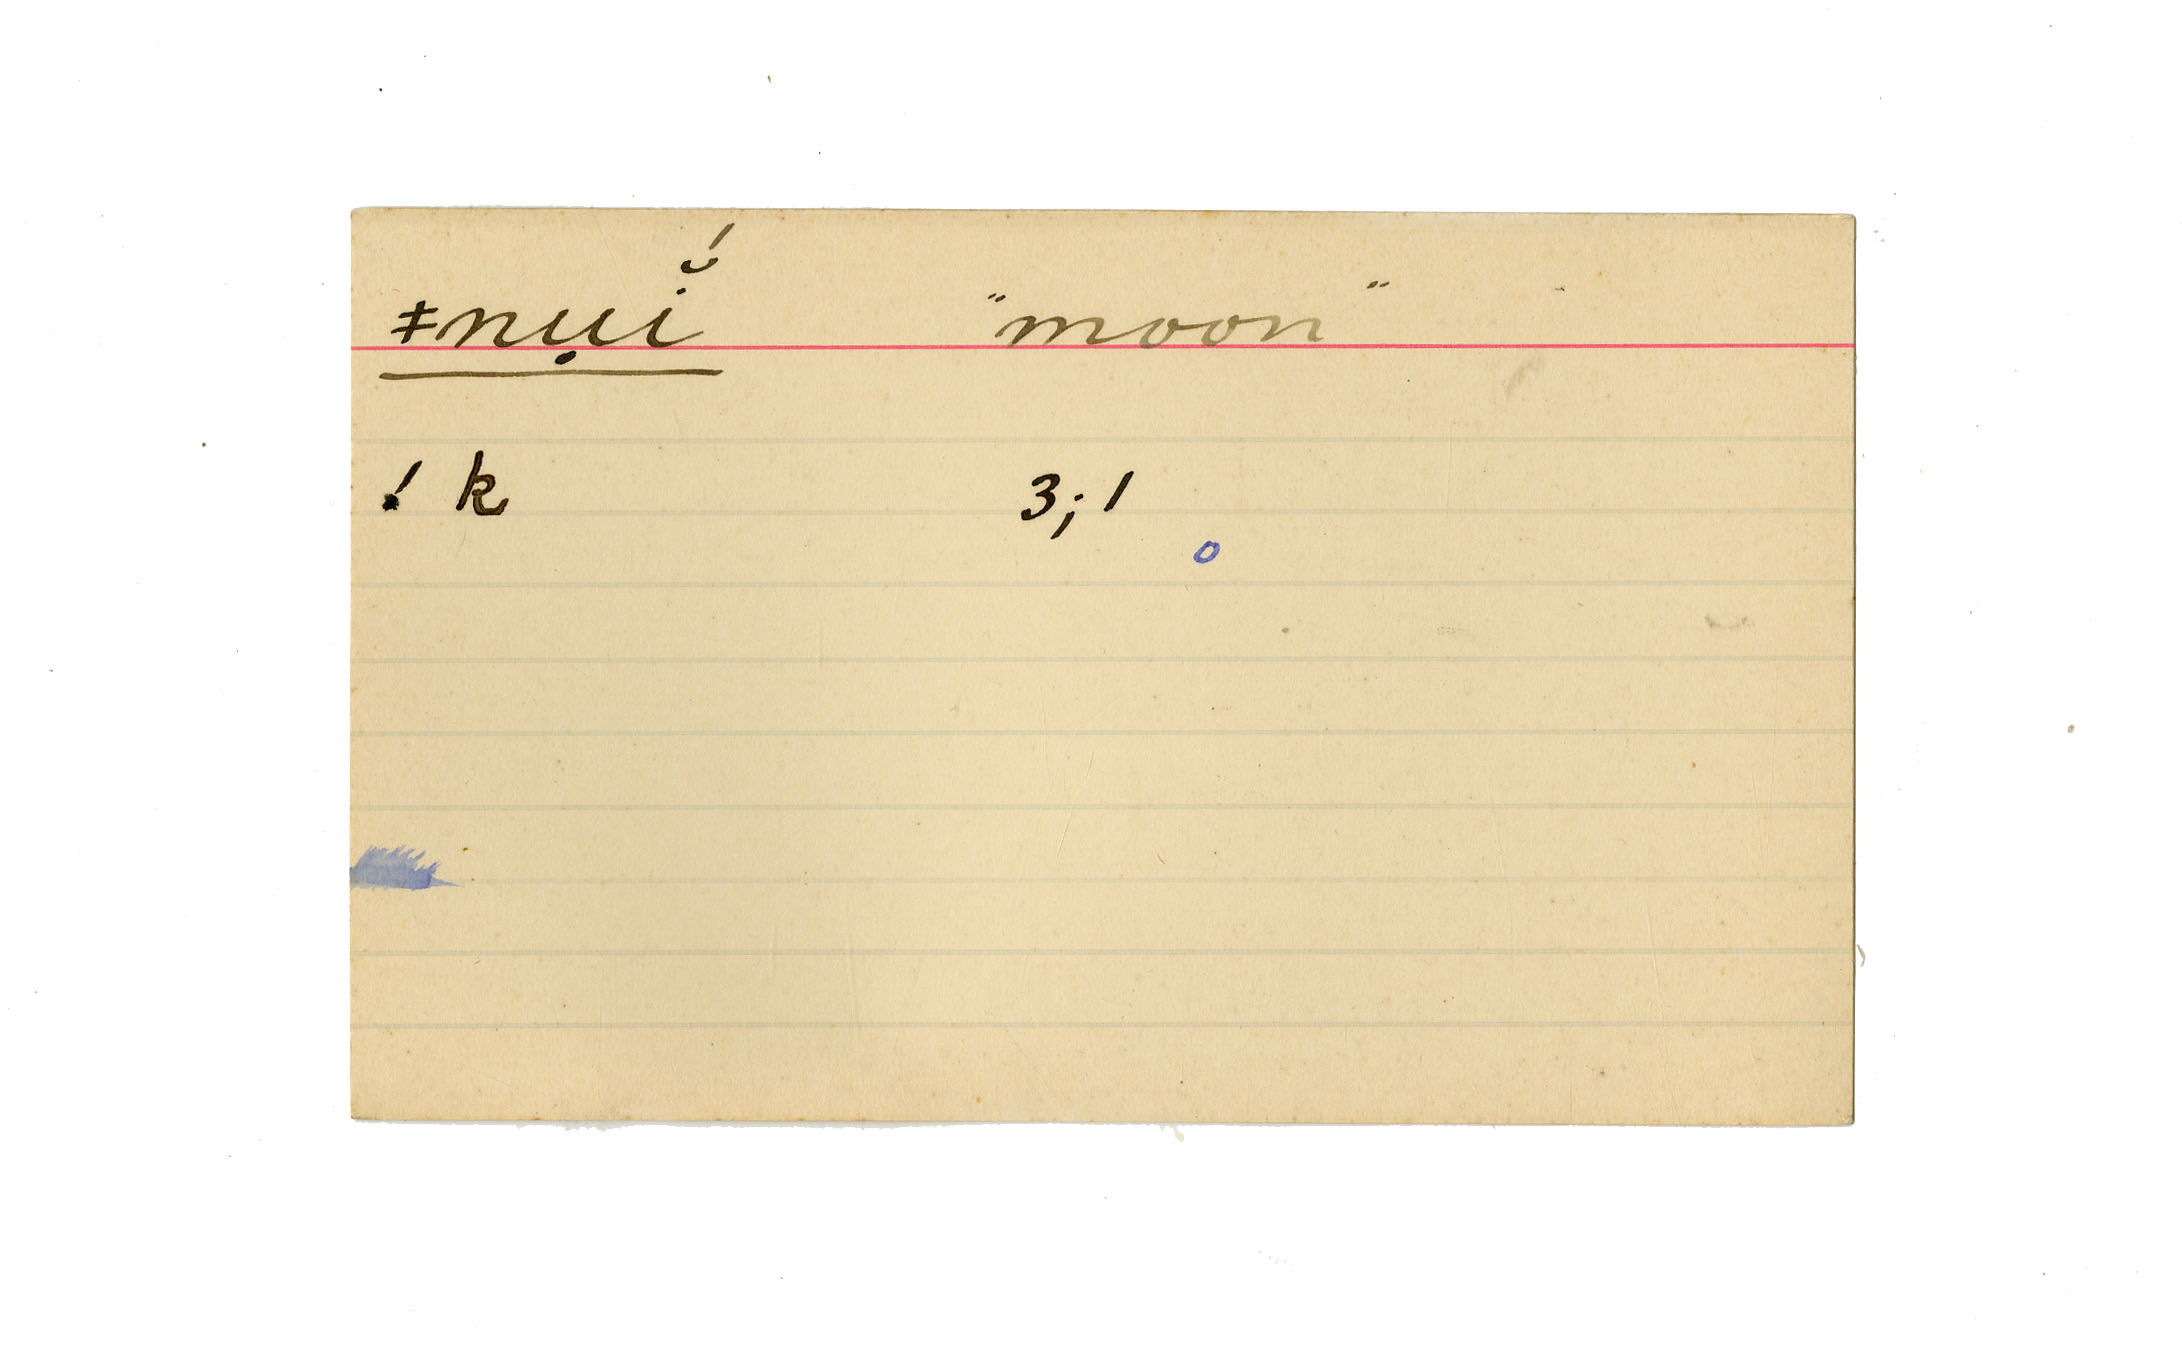 ǂnụĭ́ "moon"
! k 3; 1
o